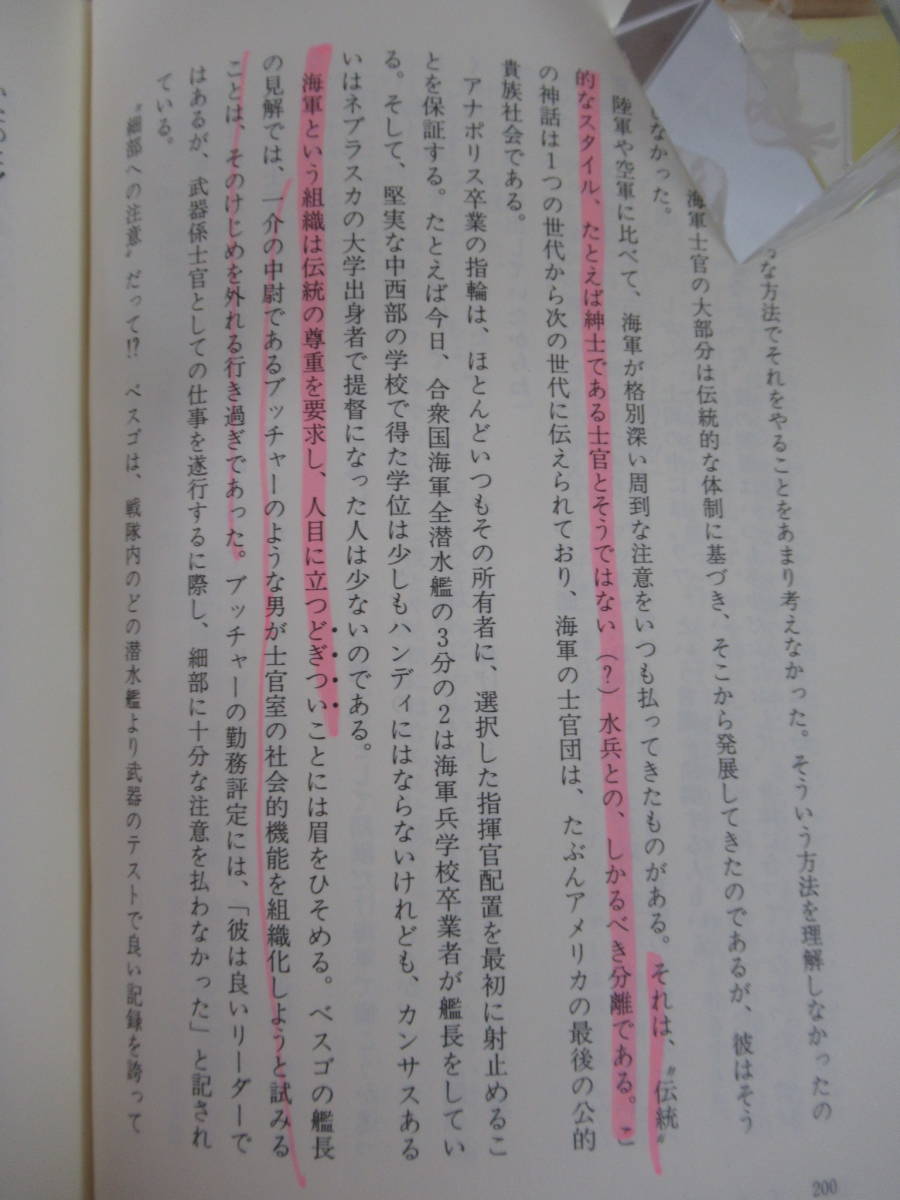 うな方法でそれをやることをあまり考えなかった。そういう方法を理解しなかったの
海軍士官の大部分は伝統的な体制に基づき、そこから発展してきたのであるが、彼はそう
しなかった。
陸軍や空軍に比べて、海軍が格別深い周到な注意をいつも払ってきたものがある。それは、〝伝統〟
的なスタイル、たとえば紳士である士官とそうではない（？）水兵との、しかるべき分離である。こ
の神話は1つの世代から次の世代に伝えられており、海軍の士官団は、たぶんアメリカの最後の公的
貴族社会である。
アナポリス卒業の指輪は、ほとんどいつもその所有者に、選択した指揮官配置を最初に射止めるこ
とを保証する。たとえば今日、合衆国海軍全潜水艦の3分の2は海軍兵学校卒業者が艦長をしてい
る。そして、堅実な中西部の学校で得た学位は少しもハンディにはならないけれども、カンサスある
いはネブラスカの大学出身者で提督になった人は少ないのである。
海軍という組織は伝統の尊重を要求し、人目に立つどぎついことには眉をひそめる。ベスゴの艦長
の見解では、一介の中尉であるブッチャーのような男が士官室の社会的機能を組織化しようと試みる
ことは、そのけじめを外れる行き過ぎであった。ブッチャーの勤務評定には、「彼は良いリーダーで
はあるが、武器係士官としての仕事を遂行するに際し、細部に十分な注意を払わなかった」と記され
ている。
〝細部への注意〟だって!?　ベスゴは、戦隊内のどの潜水艦より武器のテストで良い記録を誇って
200